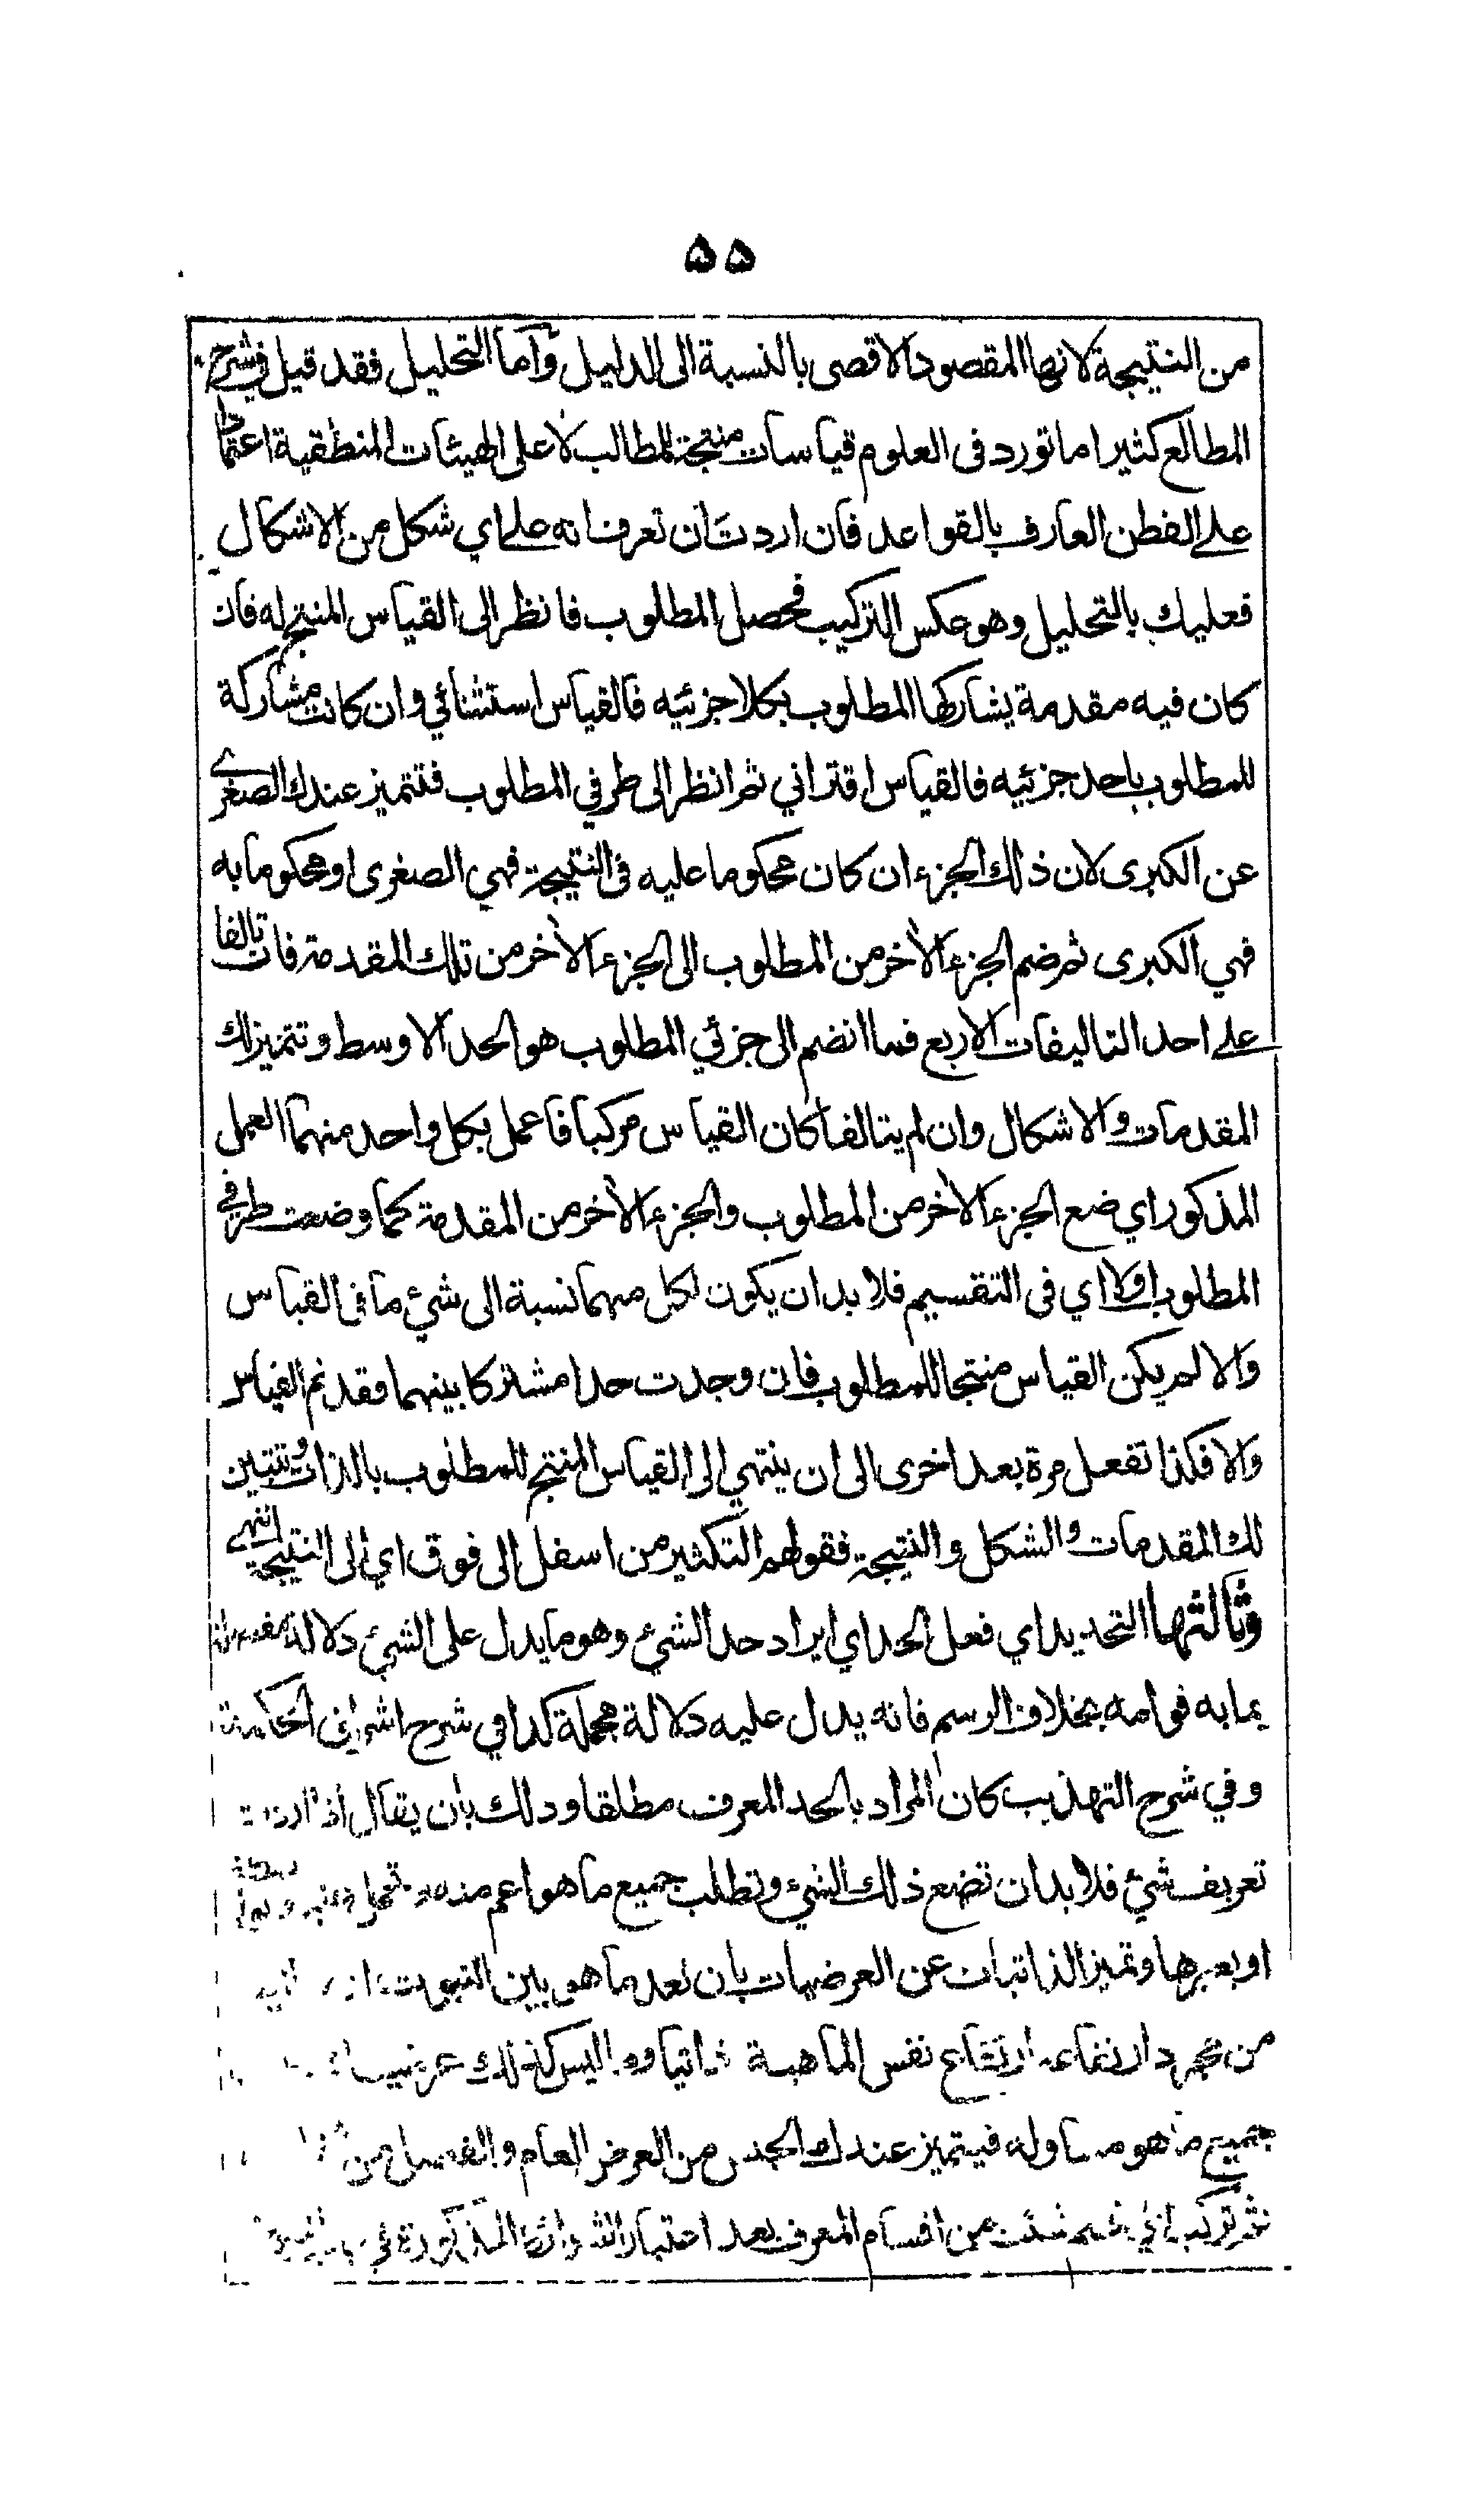 ۵۵
من النتيجة لانها المقصود الاقصى بالنسبة الى الدليل وآما التحليل فقد قيل في شرح
المطالع كثيرا ما تورد فى العلوم قياسات منتجة للمطالب لا على الهيئات المنطقية اعتمادا
على الفطن العارف بالقواعد فان اردت ان تعرف انه على اي شكل من الاشكال
فعليك بالتحليل وهو عكس التركيب فحصل المطلوب فانظر الى القياس المنتج له فان
كان فيه مقدمة يشاركها المطلوب بكلا جزئيه فالقياس استثنائي وان كانت مشاركة
للمطلوب باحد جزئيه فالقياس اقتراني ثم انظر الى طرفي المطلوب فتتميز عندك الصغرى
عن الكبرى لان ذلك الجزء ان كان محكوما عليه فى النتيجة فهي الصغرى او محكوما به
فهي الكبرى ثم ضم الجزء الاخر من المطلوب الى الجزء الاخر من تلك المقدمة فان تالفا
على احد التاليفات الاربع فما انضم الى جزئي المطلوب هو الحد الاوسط وتتميز لك
المقدمات والاشكال وان لم يتالفا كان القياس مركبا فاعمل بكل واحد منهما العمل
المذكور اي ضع الجزء الاخر من المطلوب والجزء الاخر من المقدمة كما وضعت طرفي
المطلوب اولا اي فى التقسيم فلا بد ان يكون لكل منهما نسبة الى شئ ما فى القياس
والا لم يكن القياس منتجا للمطلوب فان وجدت حدا مشتركا بينهما فقد تم القياس
والا فكذا تفعل مرة بعد اخرى الى ان ينتهي الى القياس المنتج للمطلوب بالذات وتتبين
لك المقدمات والشكل والنتيجة فقولهم التكثير من اسفل الى فوق اي الى النتيجة انتهى
وثالثها التحديد اي فعل الحد اي ايراد حد الشئ وهو ما يدل على الشئ دلالة مفصلة
بما به قوامه بخلاف الرسم فانه يدل عليه دلالة مجملة كذا في شرح اشراق الحكمة
وفي شرح التهذيب كان المراد بالحد المعرف مطلقا وذلك بان يقال اذا اردت
تعريف شئ فلا بد ان تضع ذلك الشئ وتطلب جميع ما هو اعم منه وتحمل عليه
او بغيرها وتميز الذاتيات عن العرضيات بان تعد ما هو بين الثبوت
من مجرد ارتفاعه ارتفاع نفس الماهية ذاتيا وما ليس كذلك عرضيا
جميع ما هو مساو له فيتميز عندك الجنس من العرض العام والفصل من
ثم تركب اي قسم شئت من اقسام المعرف بعد اعتبار الشرائط المذكورة في